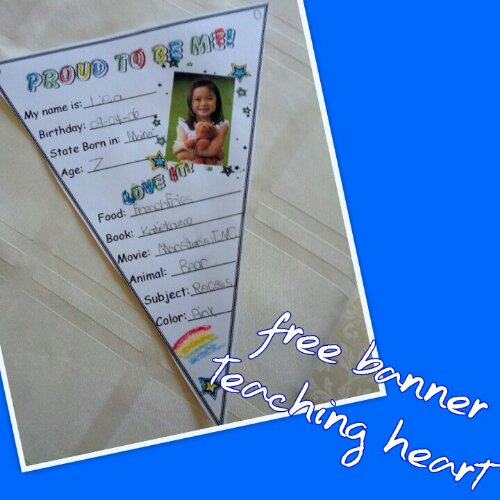 PROUD TO BE ME!
My name is: Lisa
Birthday: 09-04-06
State Born in: Maine
Age: 7
LOVE IT!
Food: french fries
Book: Katie Kazoo
Movie: Monsters INC
Animal: Bear
Subject: Recess
Color: Pink
free banner
teaching heart